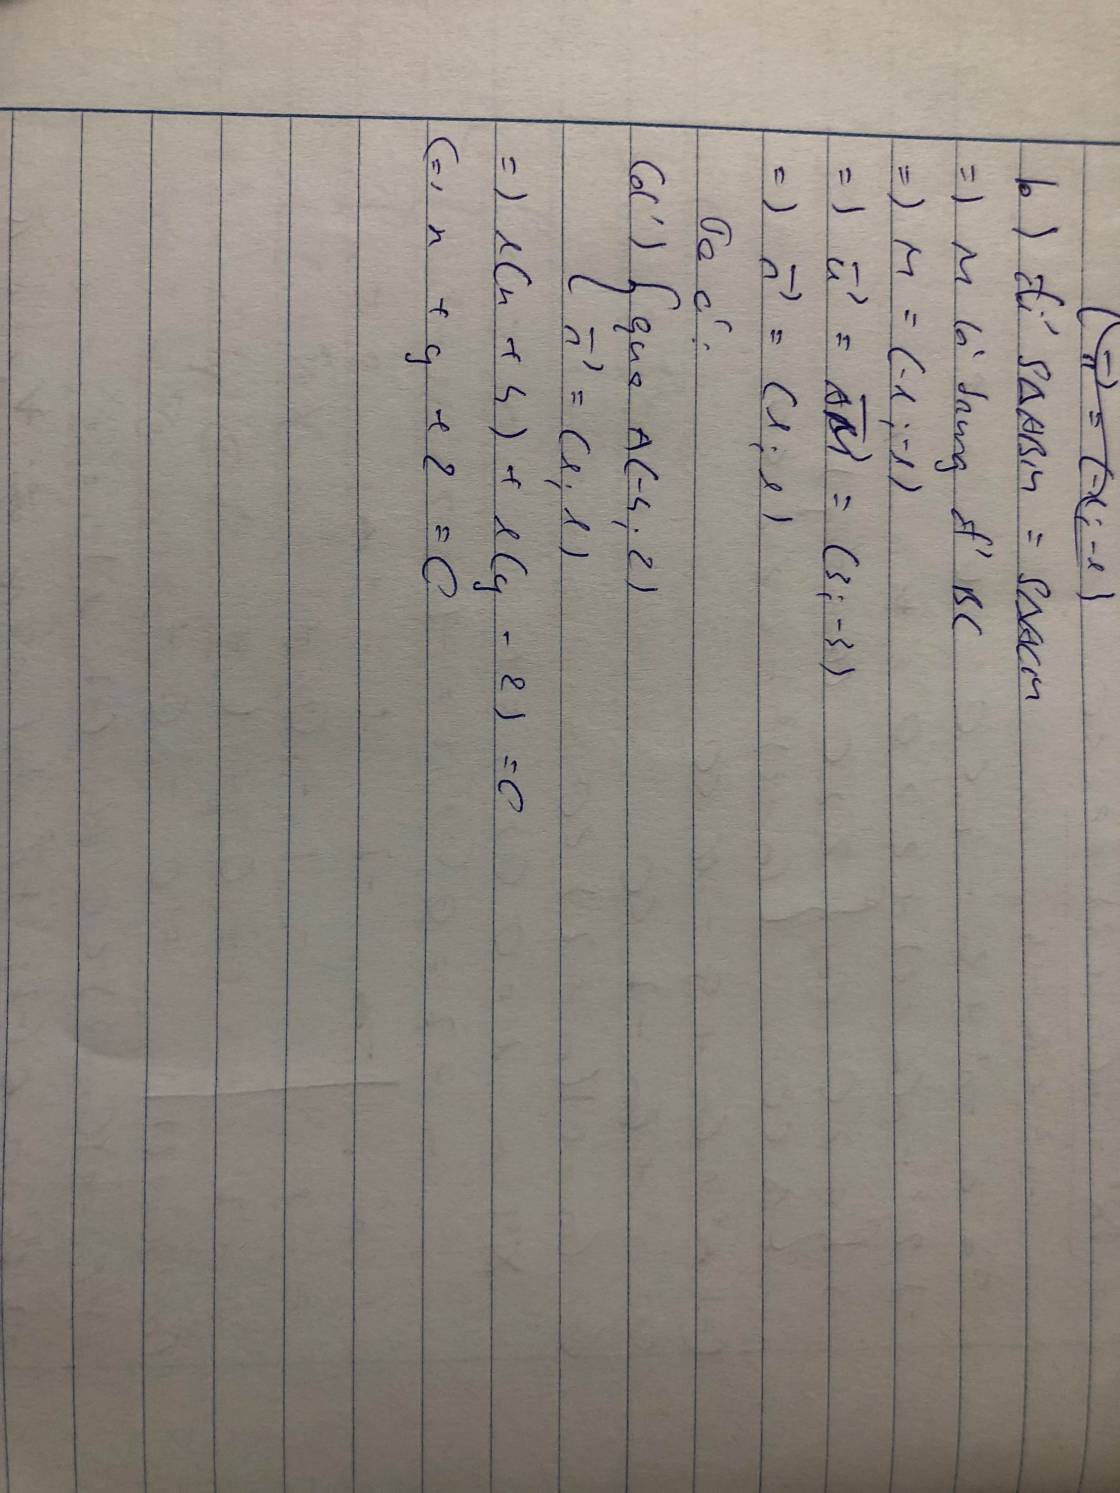 n⃗ = (-1; -1)
b) để SΔABM = SΔACM
=) M là trung đ' BC
=) M = (-1; -1)
=) u⃗ = AM⃗ = (3; -3)
=) n⃗ = (1; 1)
Ta có:
(d') { qua A(-4; 2)
{ n⃗ = (1; 1)
=) 1(x + 4) + 1(y - 2) = 0
(=) x + y + 2 = 0